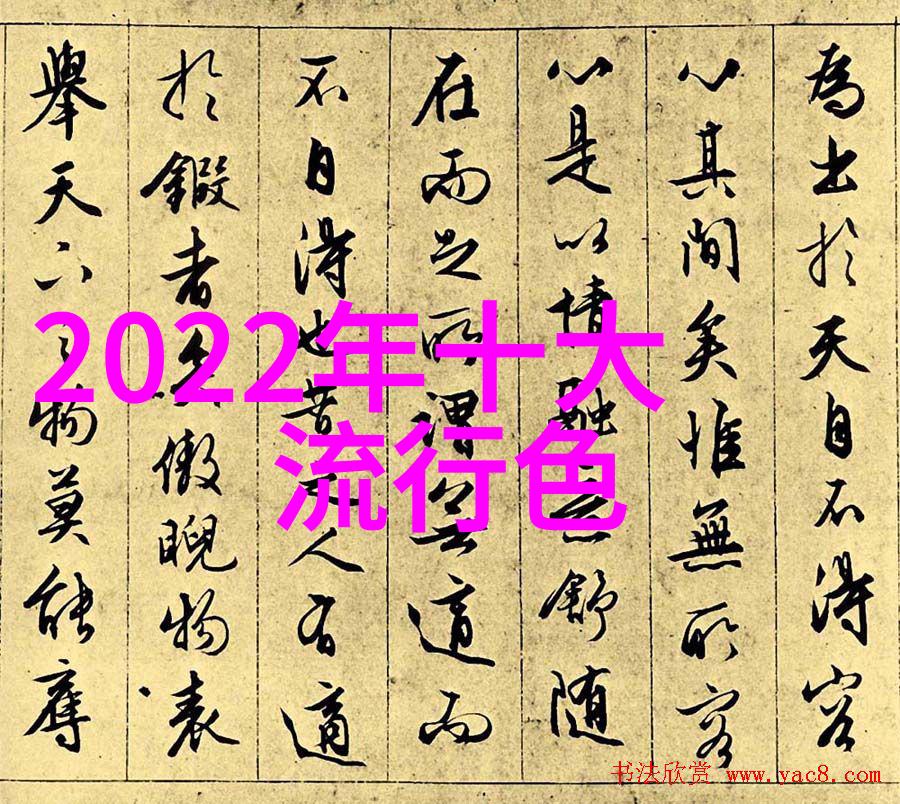 為出於天自不得容
心其间矣惟無所容
心是以情融意舒随
在而足所謂無適而
不自得也昔之人有適
於鍛者傲睨物表
舉天下之物莫能
2022年十大
流行色
书法欣赏 www.yac8.com